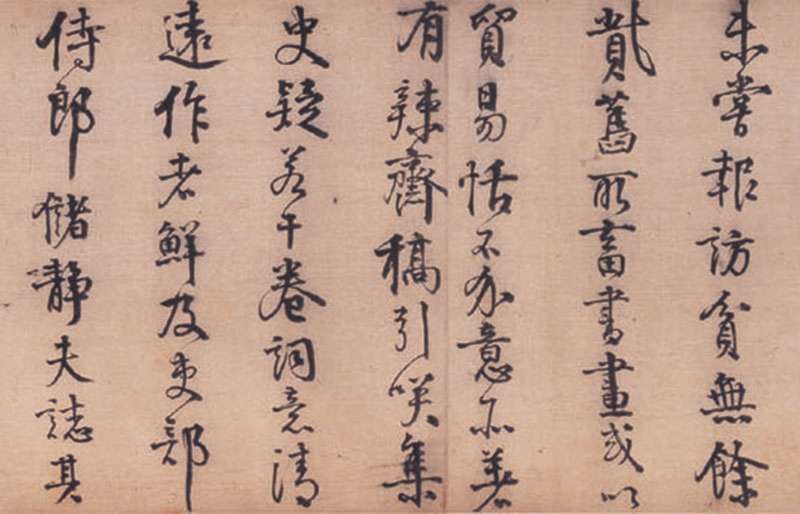 未嘗報訪貧無餘
貲舊所畜書畫或以
貿易恬不介意所著
有辣齋稿引咲集
史疑若干卷詞意清
遠作者鮮及吏部
侍郎儲静夫誌其